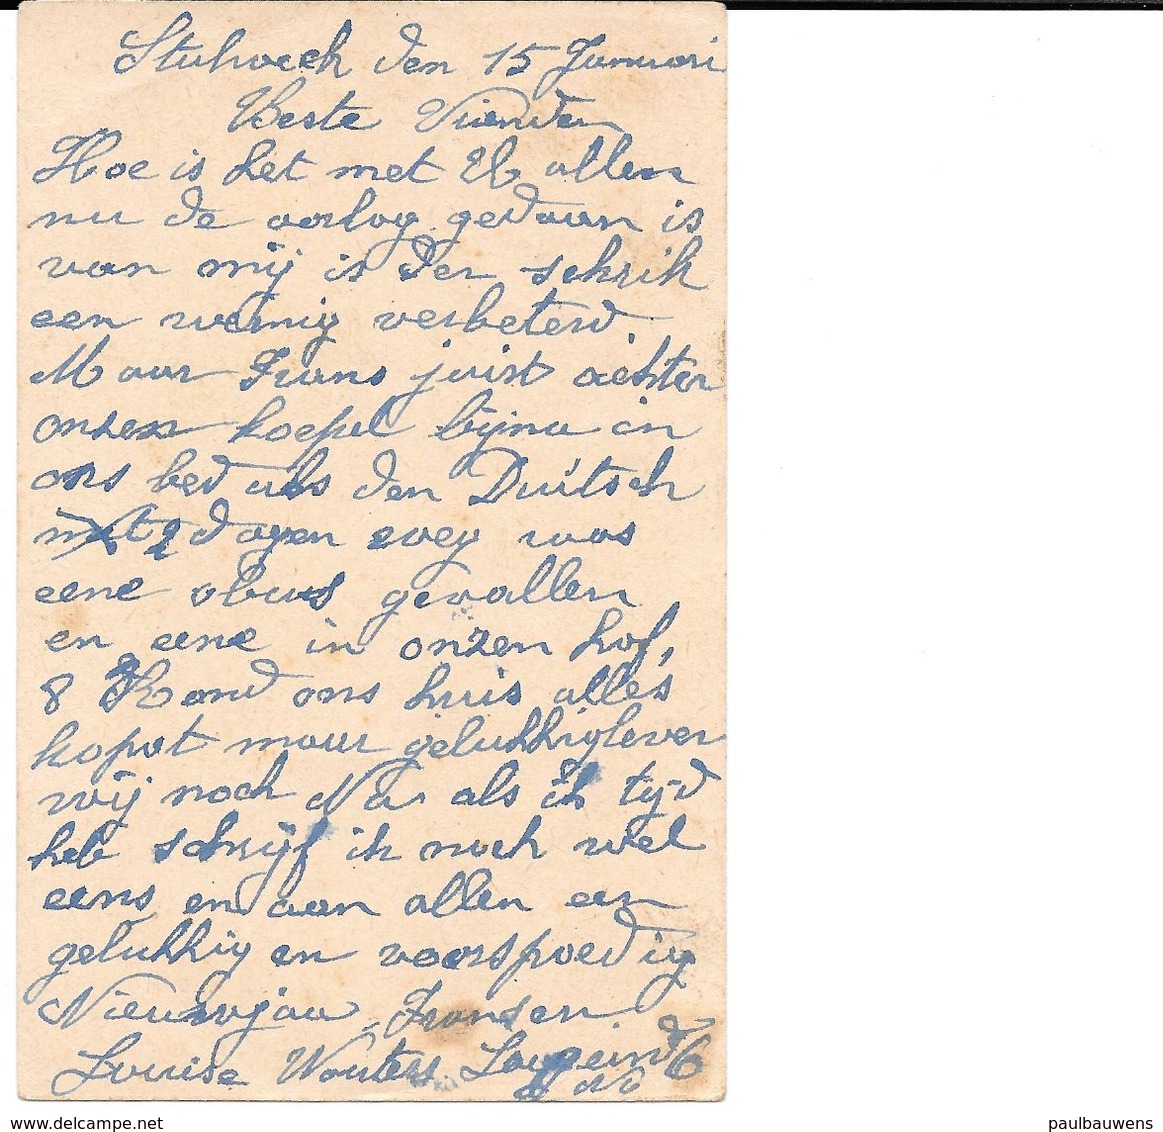 Stuhoeck den 15 Januari
Beste Vrienden
Hoe is het met U allen
nu de oorlog gedaan is
van mij is den schrik
een weinig verbeterd
Maar Frans juist achter
onzen koepel bijna in
ons bed als den Duitsch
2 dagen weg was
eene obus gevallen
en eene in onzen hof,
8 Rond ons huis alles
kapot maar gelukkig lever
wij noch Na als ik tijd
heb schrijf ik noch wel
eens en aan allen een
gelukkig en voorspoedig
Nieuwjaar Fransen
Louise Wouters
www.delcampe.net
paulbauwens